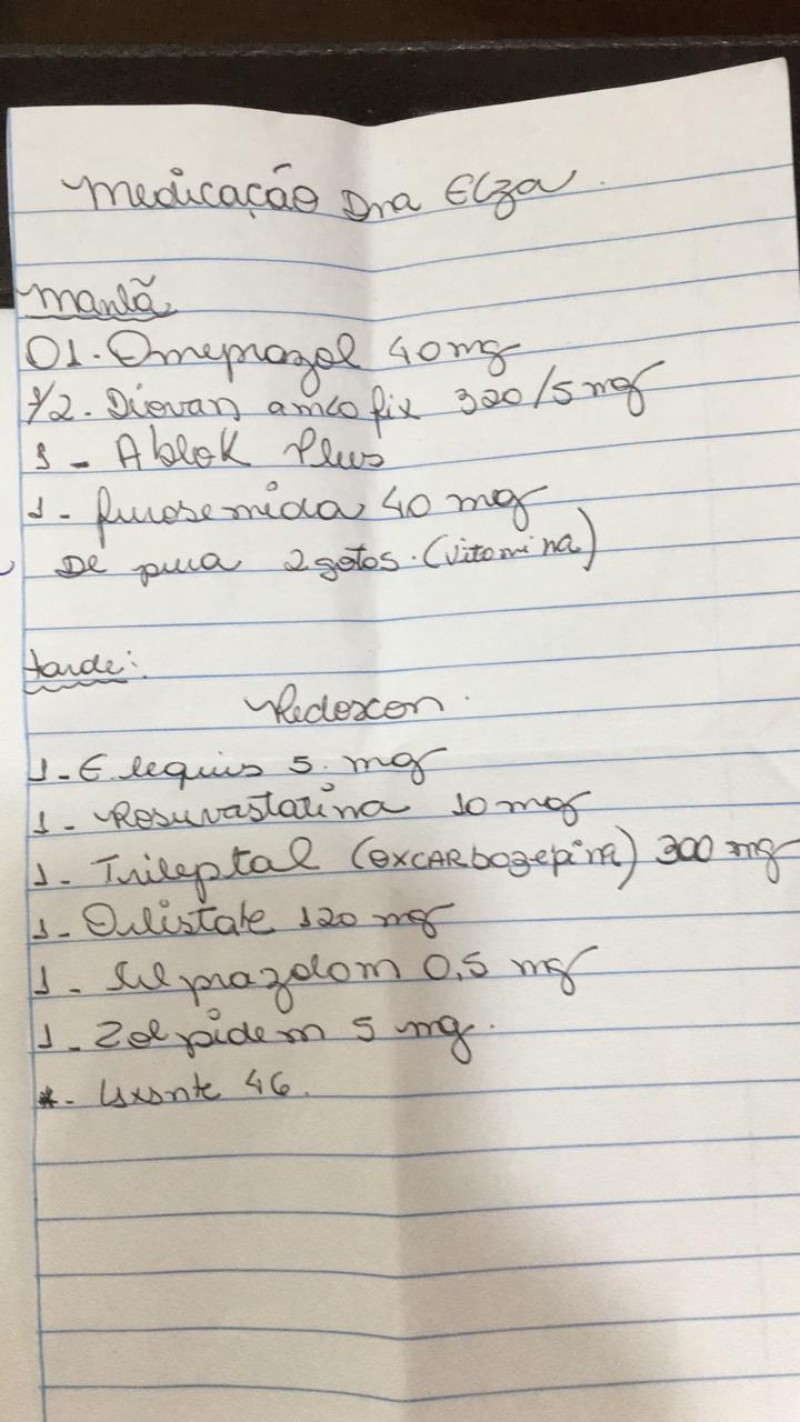 Medicação Dna Elza.
manhã
01. Omeprazol 40mg
1/2. Diovan amlo fix 320/5 mg
1 - Ablok Plus
1 - furosemida 40 mg
De pura 2 gotas. (vitamina)
tarde:
Redoxon.
1 - Elequis 5 mg
1 - Rosuvastatina 10 mg
1 - Trileptal (oxcarbazepina) 300 mg
1 - Orlistate 120 mg
1 - Alprazolom 0,5 mg
1 - Zolpidem 5 mg.
*- Laxante 46.